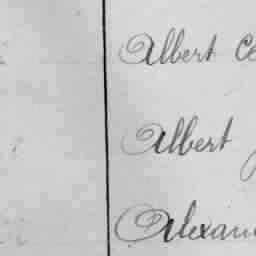 Albert Ce
Albert
Alexan